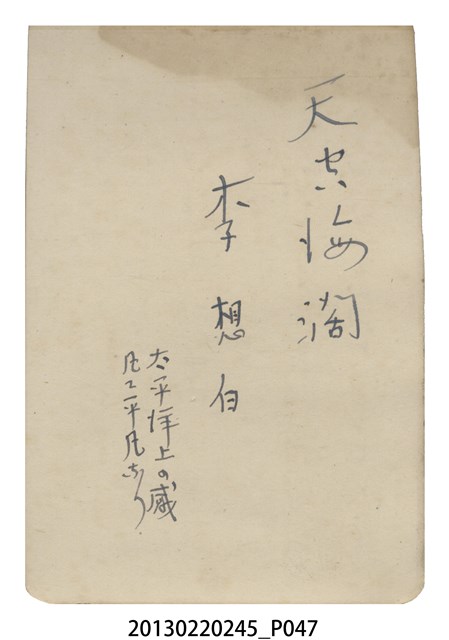 天空海濶
李想白
太平洋上の感
凡て平凡なり
20130220245_P047